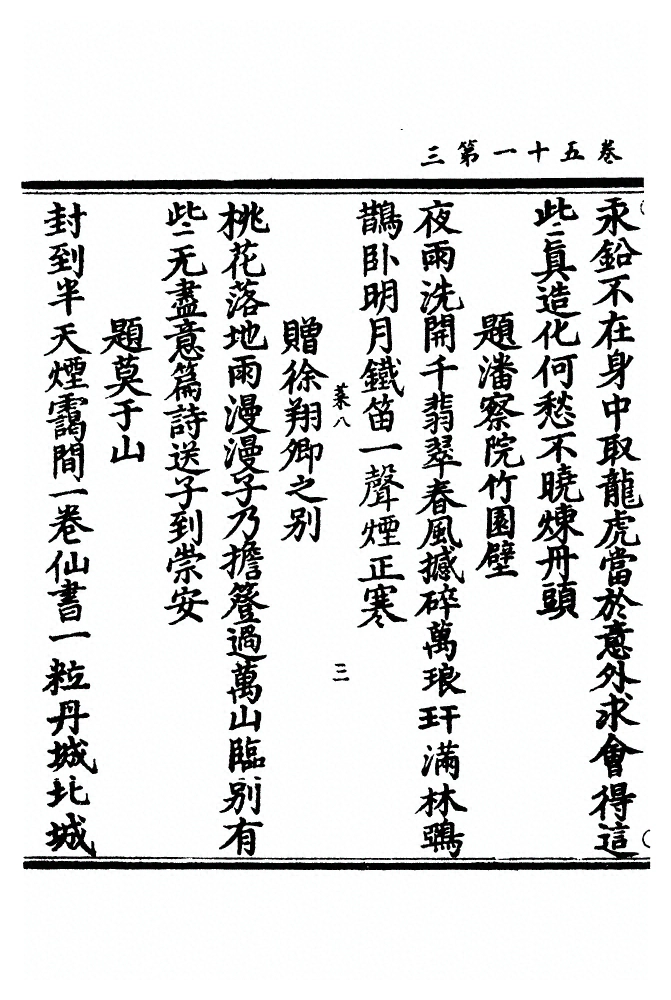 卷五十一第三
汞鉛不在身中取龍虎當於意外求會得這
些二眞造化何愁不曉煉丹頭
題潘察院竹園壁
夜雨洗開千翡翠春風撼碎萬琅玕滿林鵶
鵲卧明月鐵笛一聲煙正寒
菓八
三
贈徐翔卿之别
桃花落地雨漫漫子乃擔簦過萬山臨别有
些二无盡意篇詩送子到崇安
題莫于山
封到半天煙靄間一卷仙書一粒丹城北城